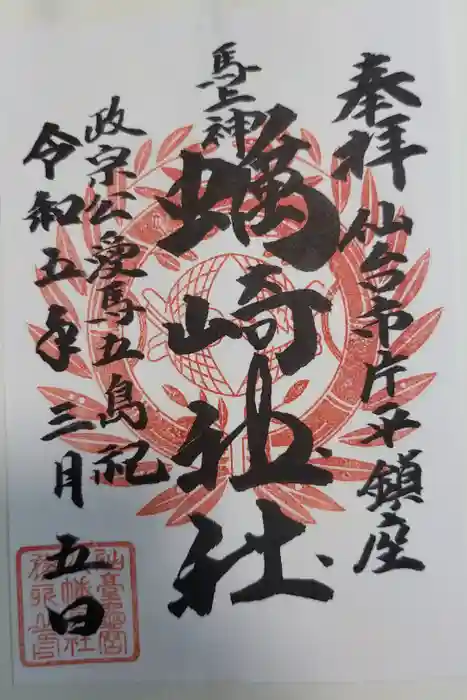 奉拝 仙台市片平鎮座
馬上神
蠣崎神社
政宗公愛馬五島祀
令和五年三月五日